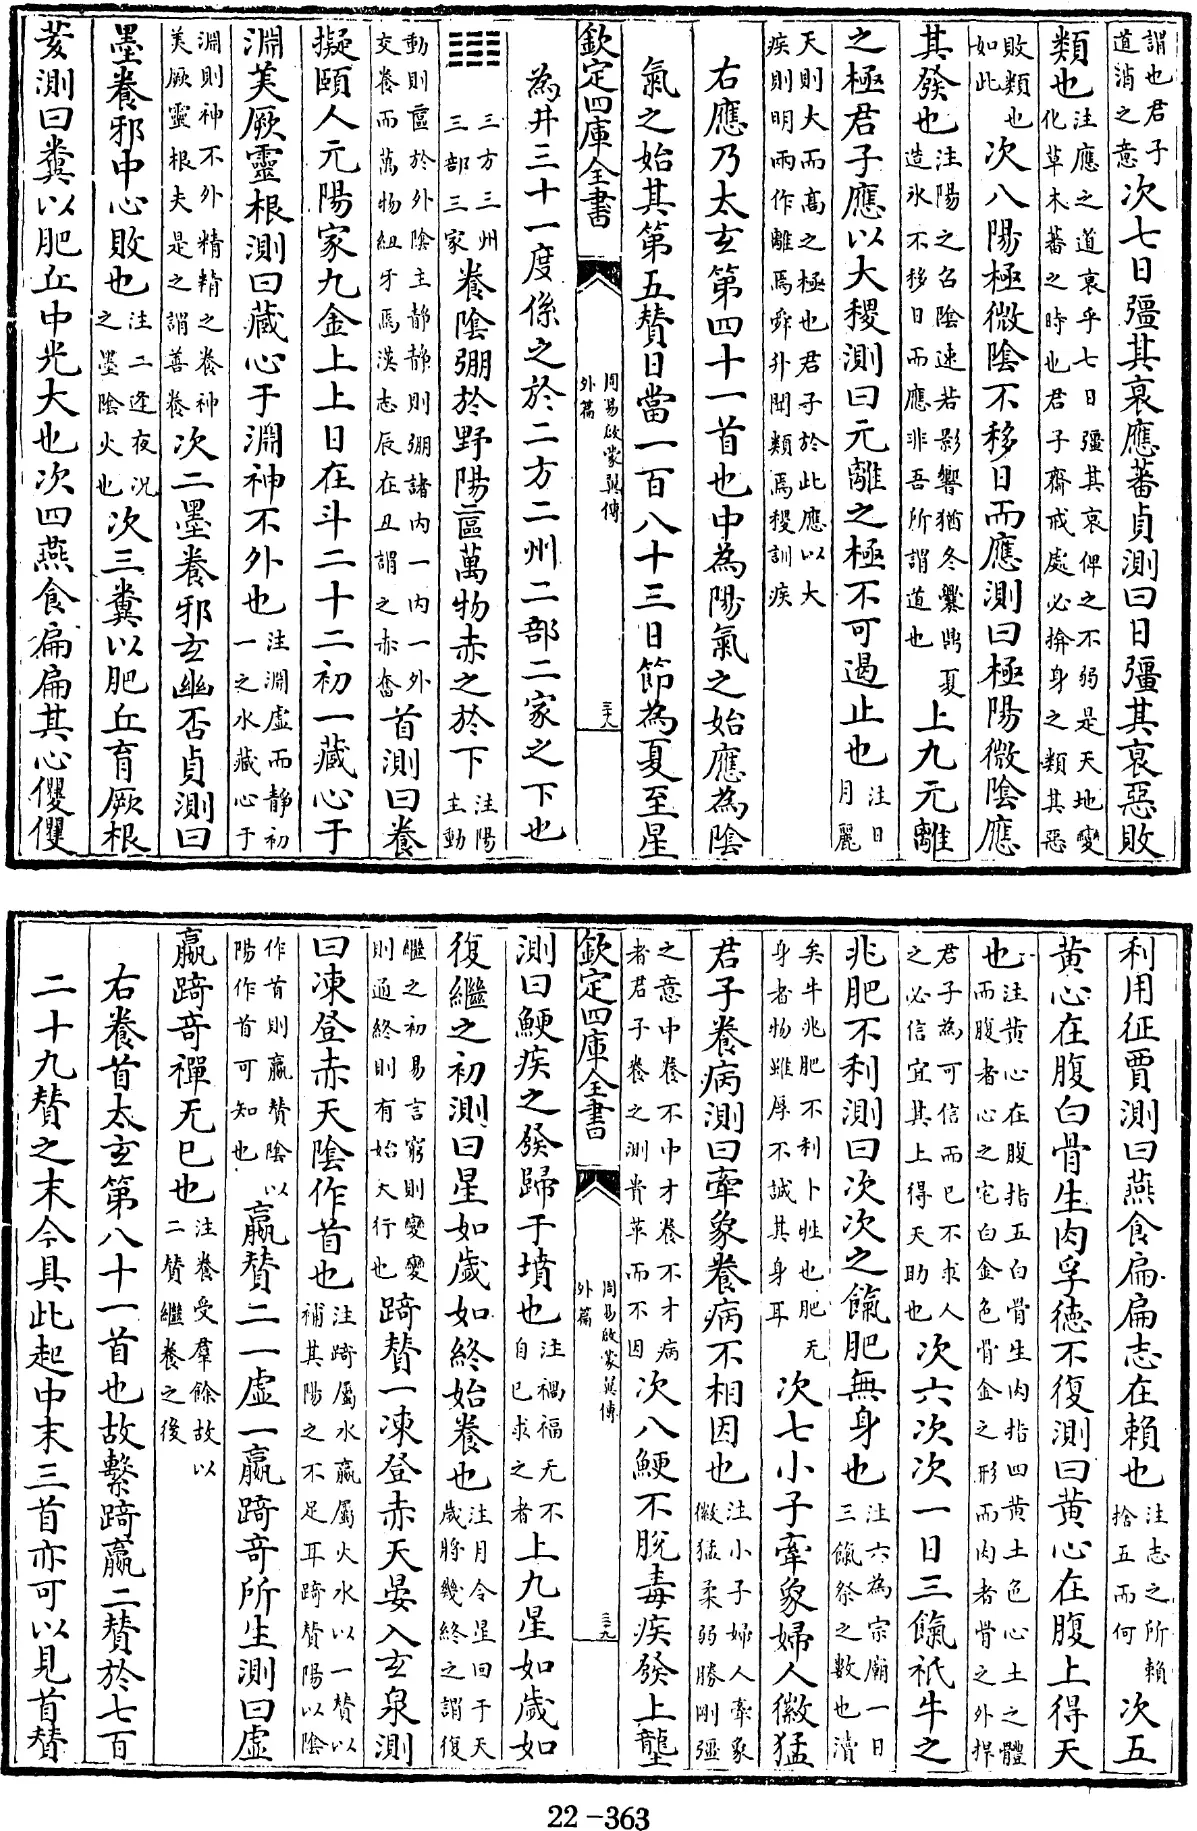 謂也君子
道消之意
次七日彊其衰應蕃貞測曰日彊其衰惡敗
類也
注應之道衰乎七日彊其衰俾之不弱是天地變
化草木蕃之時也君子齋戒處必掩身之類其惡
敗類也
如此
次八陽極微陰不移日而應測曰極陽微陰應
其發也
注陽之召陰速若影響猶冬㸑鼎夏
造氷不移日而應非吾所謂道也
上九元離
之極君子應以大稷測曰元離之極不可遏止也
注日
月麗
天則大而高之極也君子於此應以大
疾則明兩作離焉舜升聞類焉稷訓疾
右應乃太玄第四十一首也中為陽氣之始應為陰
氣之始其第五贊日當一百八十三日節為夏至星
欽定四庫全書
周易啟蒙翼傳
外篇
三十八
為井三十一度係之於二方二州二部二家之下也
三方三州
三部三家
養陰弸於野陽蓲萬物赤之於下
注陽
主動
動則蓲於外陰主靜靜則弸諸内一内一外
交養而萬物紐牙焉漢志辰在丑謂之赤奮
首測曰養
擬頤人元陽家九金上上日在斗二十二初一藏心于
淵美厥靈根測曰藏心于淵神不外也
注淵虚而靜初
一之水藏心于
淵則神不外精精之養神
美厥靈根夫是之謂善養
次二墨養邪玄幽否貞測曰
墨養邪中心敗也
注二逢夜况
之墨陰火也
次三糞以肥丘育厥根
荄測曰糞以肥丘中光大也次四燕食扁扁其心㒔㒔
利用征賈測曰燕食扁扁志在賴也
注志之所賴
捨五而何
次五
黄心在腹白骨生肉孚徳不復測曰黄心在腹上得天
也
注黄心在腹指五白骨生肉指四黄土色心土之體
而腹者心之宅白金色骨金之形而肉者骨之外捍
君子為可信而已不求人
之必信宜其上得天助也
次六次次一日三餼祇牛之
兆肥不利測曰次次之餼肥無身也
注六為宗廟一日
三餼祭之數也瀆
矣牛兆肥不利卜牲也肥无
身者物雖厚不誠其身耳
次七小子牽象婦人徽猛
君子養病測曰牽象養病不相因也
注小子婦人牽象
徽猛柔弱勝剛彊
之意中養不中才養不才病
者君子養之測貴革而不因
次八鯁不脱毒疾發上壟
欽定四庫全書
周易啟蒙翼傳
外篇
三十九
測曰鯁疾之發歸于墳也
注禍福无不
自已求之者
上九星如歲如
復繼之初測曰星如歲如終始養也
注月令星回于天
歲將幾終之謂復
繼之初易言窮則變變
則通終則有始天行也
踦贊一凍登赤天晏入玄泉測
曰凍登赤天陰作首也
注踦屬水嬴屬火水以一贊以
補其陽之不足耳踦贊陽以陰
作首則嬴贊陰以
陽作首可知也
嬴贊二一虚一嬴踦奇所生測曰虚
嬴踦奇禪无已也
注養受羣餘故以
二贊繼養之後
右養首太玄第八十一首也故繫踦嬴二贊於七百
二十九贊之末今具此起中末三首亦可以見首贊
22-363